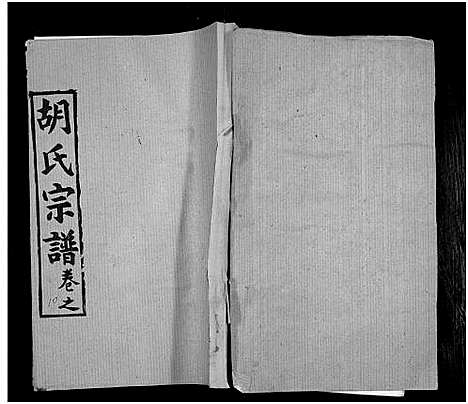 胡氏宗譜卷之
10